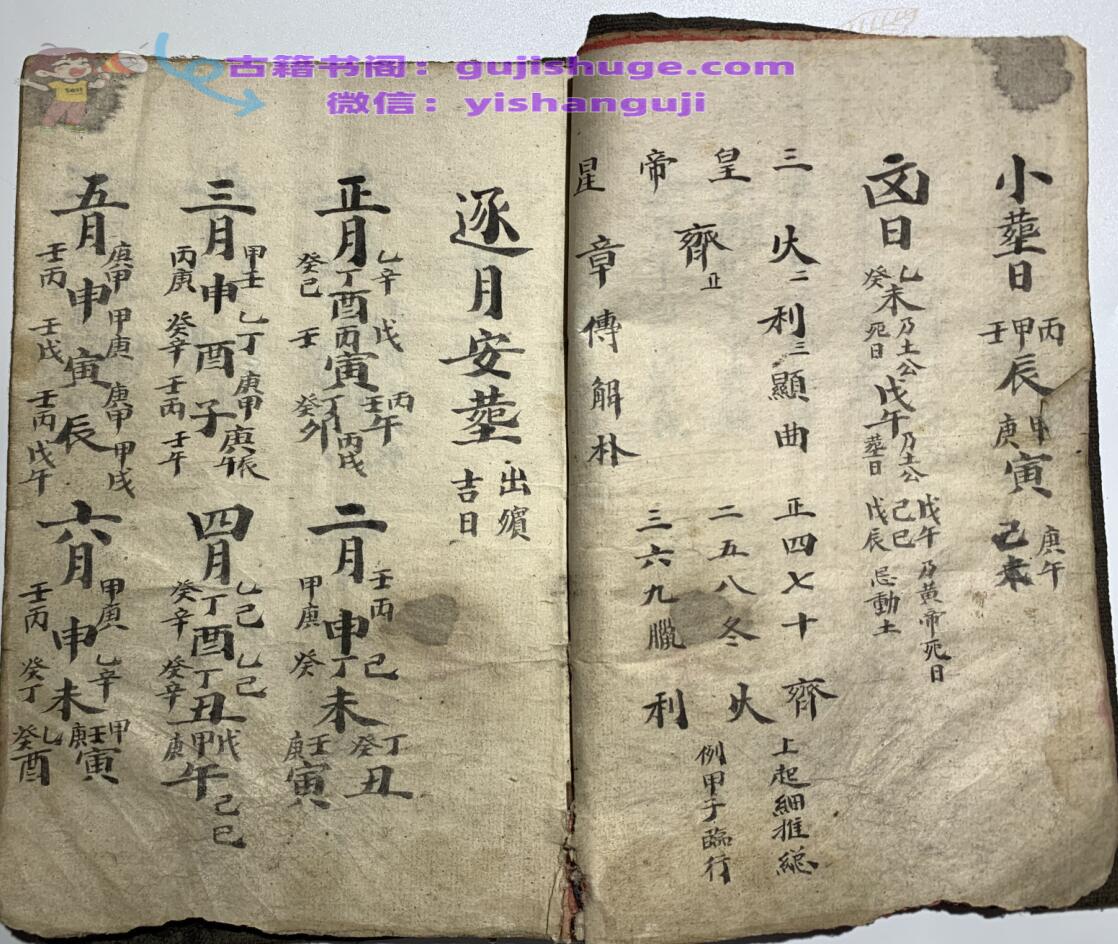 古籍书阁：gujishuge.com
微信：yishanguji
小塟日
丙甲壬辰
甲庚寅
庚午
己未
凶日
乙癸未
乃土公死日
戊午
乃土公塟日
戊午己巳戊辰
乃黄帝死日
忌動土
三皇帝星
火二齊正章
利三傳
顯解
曲朴
正四七十齊
二五八冬火
三六九臘利
上起細推総
例甲子臨行
逐月安塟
出殯吉日
正月
乙辛丁癸己酉
戊丙壬寅
丙壬午
丁癸卯
丙戌
二月
壬丙甲庚申
己丁癸未
丁癸丑
壬庚寅
三月
甲壬丙庚申
乙丁癸辛酉
庚甲壬丙子
庚辰
壬午
四月
乙己丁癸辛酉
乙己丁癸辛丑
戊甲庚午
己巳
五月
庚甲壬丙申
甲庚壬戊寅
庚甲壬丙辰
甲戌
戊午
六月
甲庚壬丙申
乙辛癸丁未
甲壬庚寅
乙癸酉